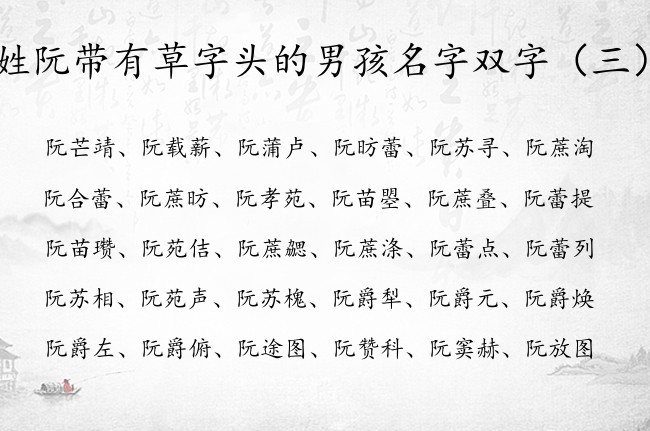 姓阮带有草字头的男孩名字双字（三）
阮芒靖、阮载薪、阮蒲卢、阮昉蕾、阮苏寻、阮蔗淘
阮合蕾、阮蔗昉、阮孝苑、阮苗曌、阮蔗叠、阮蕾提
阮苗瓒、阮苑佶、阮蔗勰、阮蔗涤、阮蕾点、阮蕾列
阮苏相、阮苑声、阮苏槐、阮爵犁、阮爵元、阮爵焕
阮爵左、阮爵俯、阮途图、阮赞科、阮窦赫、阮放图